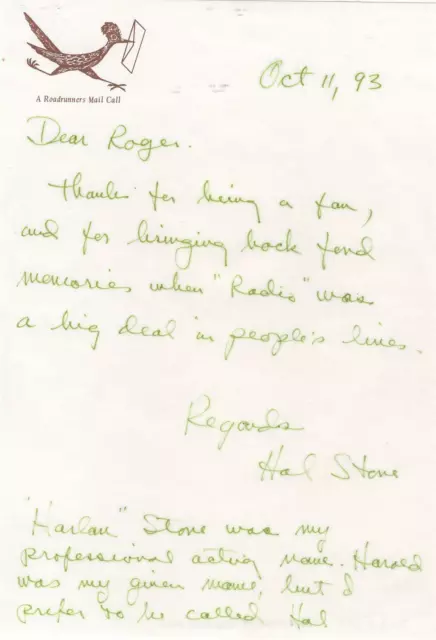 A Roadrunners Mail Call
Oct 11, 93
Dear Roger.
Thanks for being a fan,
and for bringing back fond
memories when "Radio" was
a big deal in people's lives.
Regards
Hal Stone
"Harlan" Stone was my
professional acting name. Harold
was my given name, but I
prefer to be called Hal